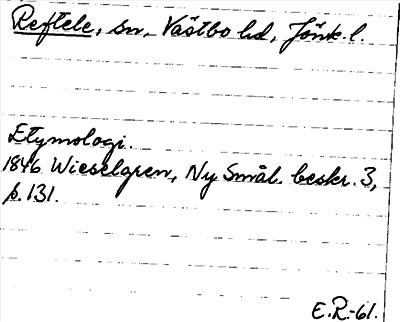 Reftele, sn, Västbo hd, Jönk. l.
Etymologi.
1846 Wieselgren, Ny Smål. beskr. 3,
p. 131.
E.R.-61.